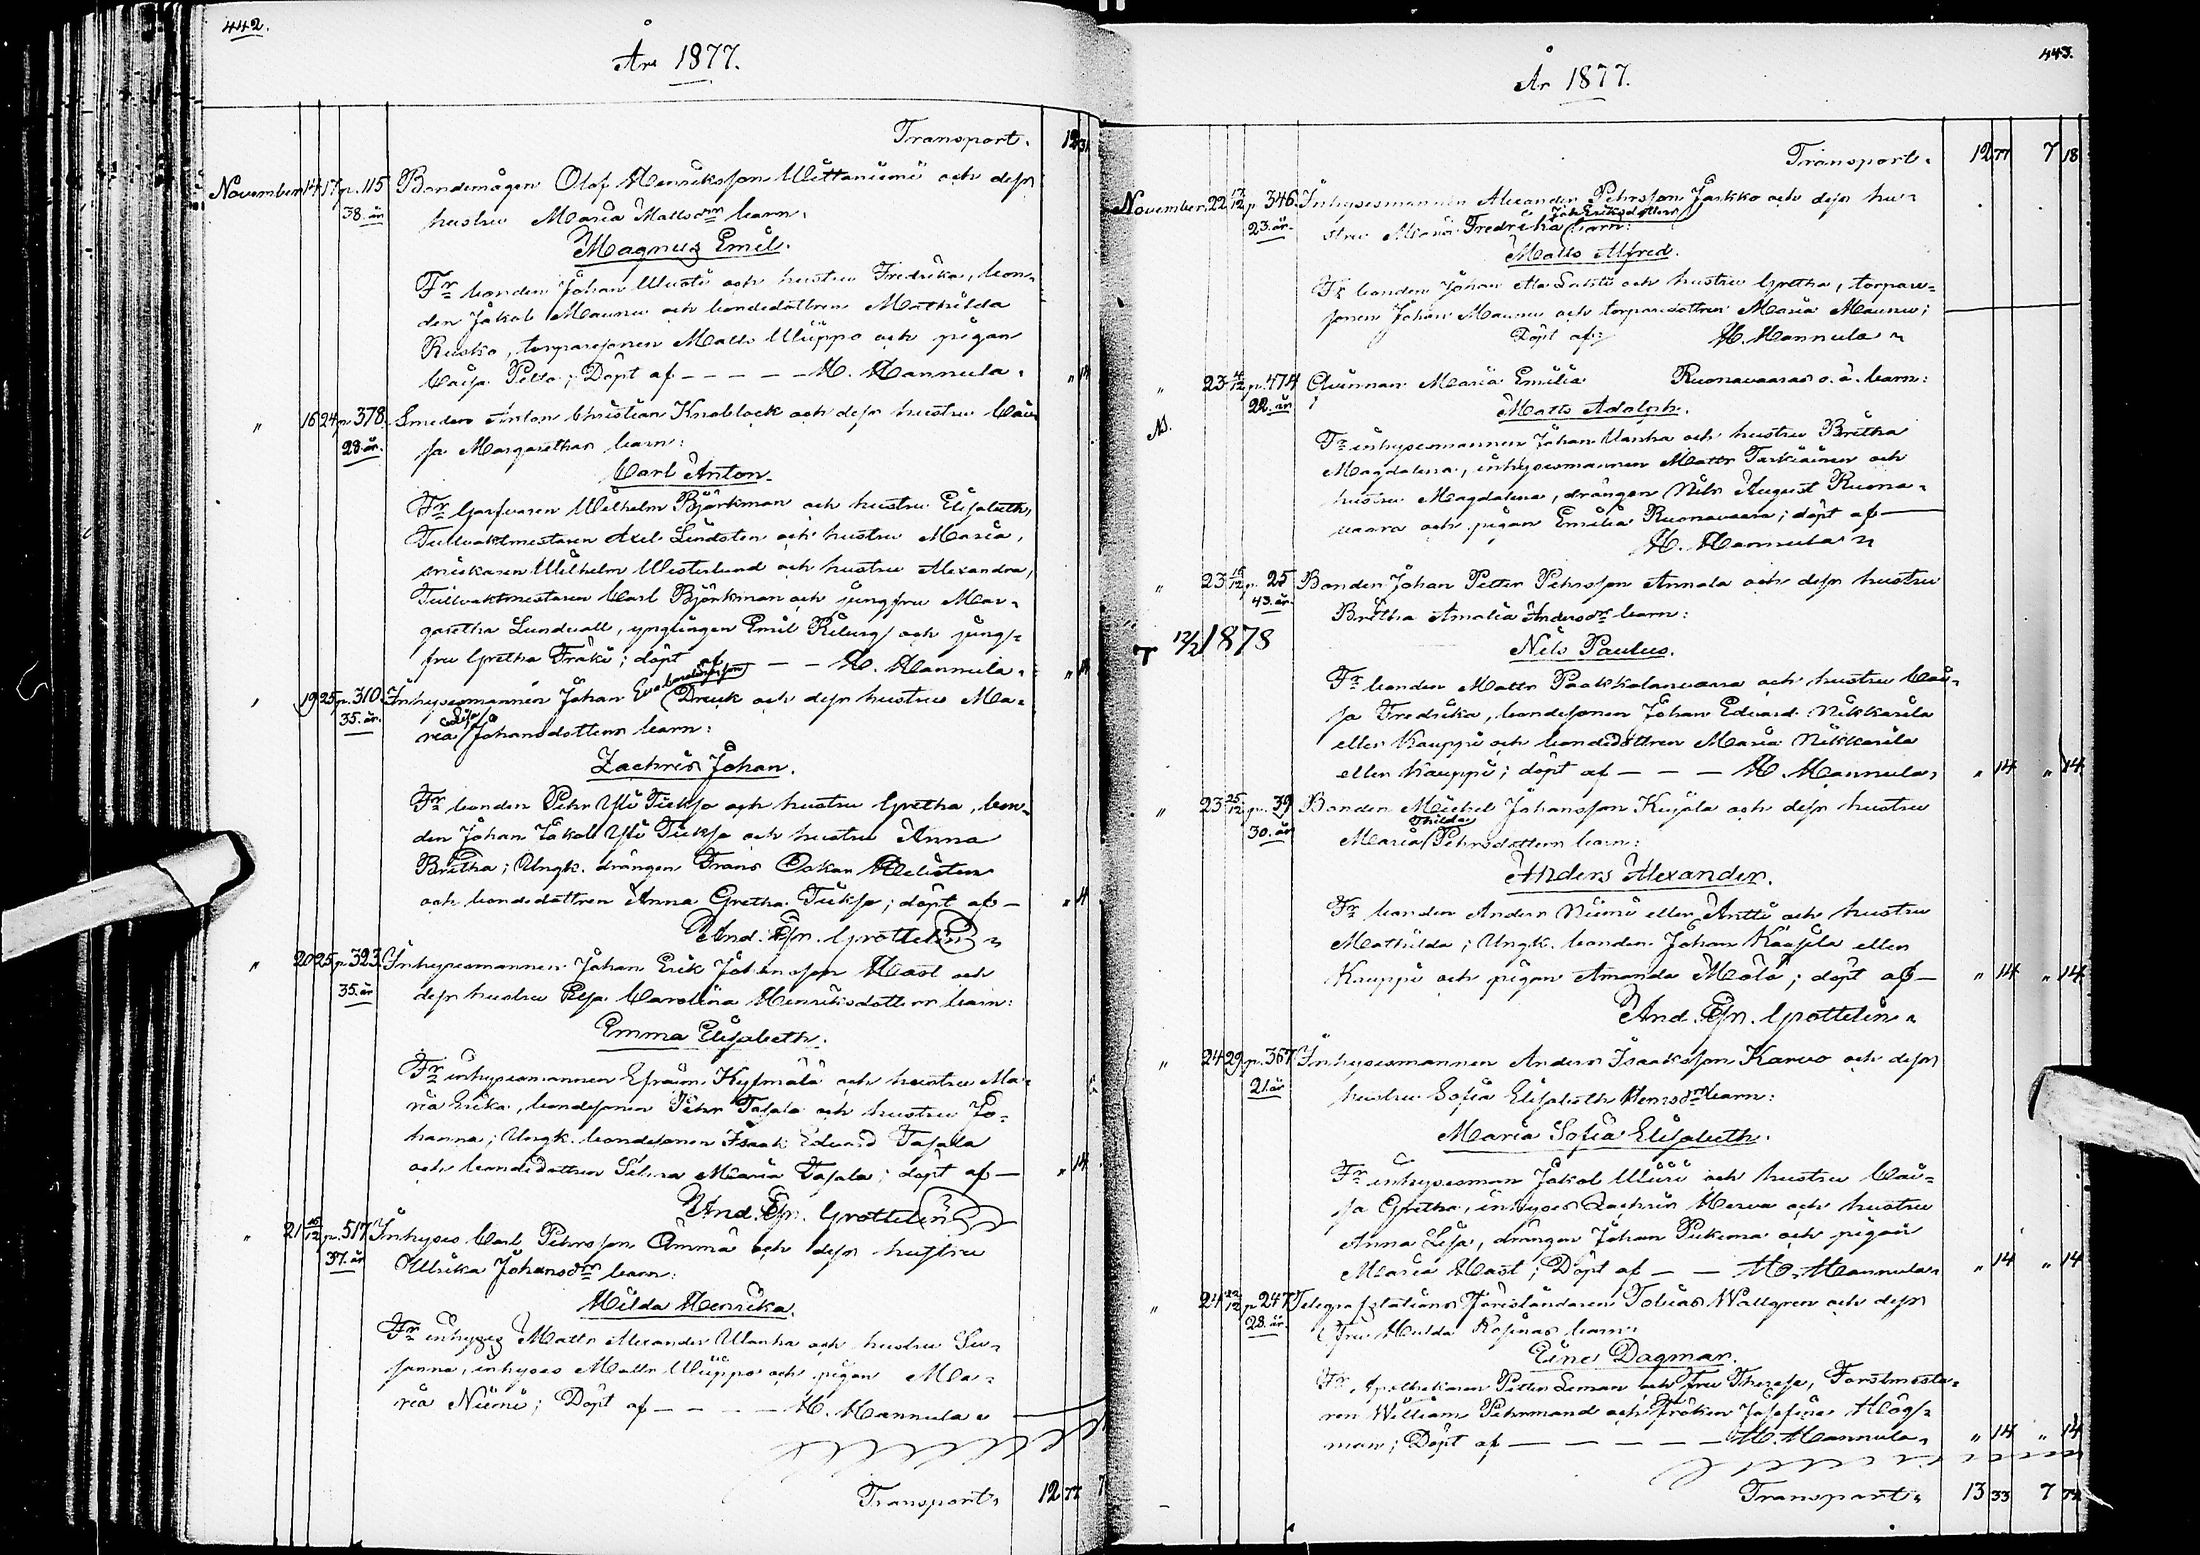 442.
År 1877.
Transport. 12 31
November 14 17 p. 115 Bondemågen Olof Henriksson Wittaniemi och dess
38. år hustru Maria Mattsdrs barn:
Magnus Emil.
Fr bonden Johan och hustru Fredrika, bon-
den Jakob Maunu och bondedottren Mathilda
Rusko, torparesonen Matts och pigan
Caisa Pello; Döpt af — — — — H. Hannula. " 14
" 16 24 p. 378. Smeden Anton Christian Knoblock och dess hustru Cai-
28. år. sa Margarethas barn:
Carl Anton.
Fr Garfvaren Wilhelm Björkman och hustru Elisabeth,
Tullvaktmestaren Axel Lindsten och hustru Maria,
Wilhelm Westerlund och hustru Alexandra,
Tullvaktmestaren Carl Björkman och jungfru Mar-
garetha Lundvall, ynglingen Emil och jung-
fru Gretha Fraki; döpt af — — H. Hannula. " 14
" 19 25 p. 310. Inhysesmannen Johan och dess hustru Ma-
35. år. ria Caisa Johansdotters barn:
Zachris Johan.
Fr bonden Pehr Yli Tiksa och hustru Gretha, bon-
den Johan Jakob Yli Tiksa och hustru Anna
Britha; Ungk. drängen Frans Oskar
och bondedottren Anna Gretha Tiksa; döpt af — " 14
And. Efr. Grottelin
" 20 25 p. 323. Inhysesmannen Johan Erik Johansson Hast och
35. år dess hustru Elsa Carolina Henriksdotters barn:
Emma Elisabeth.
Fr inhysesmannen Efraim och hustru Ma-
ria Erika, bondesonen Pehr Tasala och hustru Jo-
hanna; Ungk. bondesonen Isaak Eduard Tasala
och bondedottren Selma Maria Tasala; döpt af — " 14
And. Efr. Grottelin
" 21 p. 517 Inhyses Carl Pehrsson Ämmä och dess hustru
37. år Ulrika Johansdrs barn:
Hilda Henrika.
Fr inhyses Matts Alexander Wanha och hustru Su-
sanna, inhyses Matts och pigan Ma-
ria Niemi; Döpt af — — — — H. Hannula
Transport. 12 77 7
443.
År 1877.
Transport. 12 77 7 18
November 22 p. 346. Inhysesmannen Alexander Pehrsson Jaskko och dess hu-
Joh. Eriksdotters
23. år. stru Maria Fredrika barn:
Matts Alfred.
Fr bonden Johan och hustru Gretha, torpare-
sonen Johan Maunu och torparedottren Maria Maunu;
Döpt af: H. Hannula
" 23 p. 474 Qvinnan Maria Emilia Ruonavaaras o. ä. barn:
22. år
Matts Adolph.
Fr inhysesmannen Johan Wanha och hustru Britha
Magdalena, inhysesmannen Matts Tarkiainen och
hustru Magdalena, drängen Nils August Ruona-
vaara och pigan Emilia Ruonavaara; döpt af —
H. Hannula
" 23 p. 25 Bonden Johan Petter Pehrsson Annala och dess hustru
43. år. Britha Amalia Andersdrs barn:
T 12/2 1878
Nils Paulus.
Fr bonden Matts Paakkolanvaara och hustru Cai-
sa Fredrika, bondesonen Johan Eduard Nikkarila
eller Kauppi och bondedottren Maria Nikkarila
eller Kauppi; döpt af — — — H. Hannula " 14 " 14
" 23 25/12 p. 39 Bonden Michel Johansson Kusjala och dess hustru
Thilda
30. år Maria Pehrsdotters barn:
Anders Alexander.
Fr bonden Anders Niemi eller Antti och hustru
Mathilda; Ungk. bonden Johan eller
Kauppi och pigan Amanda Mölä; döpt af — " 14 " 14
And. Efr. Grottelin
" 24 29 p. 367 Inhysesmannen Anders Isaksson Karvo och dess
21. år hustru Sofia Elisabeth Henrsdrs barn:
Maria Sofia Elisabeth.
Fr inhysesman Jakob och hustru Cai-
sa Gretha, inhyses Zachris Herva och hustru
Anna Lisa, drängen Johan och pigan
Maria Hast; Döpt af — — H. Hannula " 14 " 14
" 24 22/12 p. 247 Telegrafstations Föreståndaren Tobias Wallgren och dess
28. år fru Hulda Rosinas barn:
Eines Dagmar.
Fr. Apothekaren Petter Leman och fru Theresa, Forstmesta-
ren William Pehrmand och fröken Josefina Hög-
man; Döpt af — — — — — H. Hannula " 14 " 14
Transport. 13 33 7 74